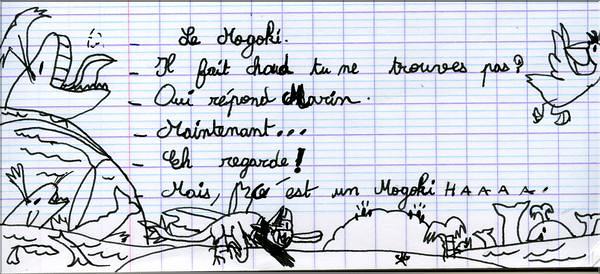 _ Le Mogoki.
_ Il fait chaud tu ne trouves pas ?
_ Oui répond Marin.
_ Maintenant...
_ Eh regarde !
_ Mais, c'est un Mogoki HAAAA.